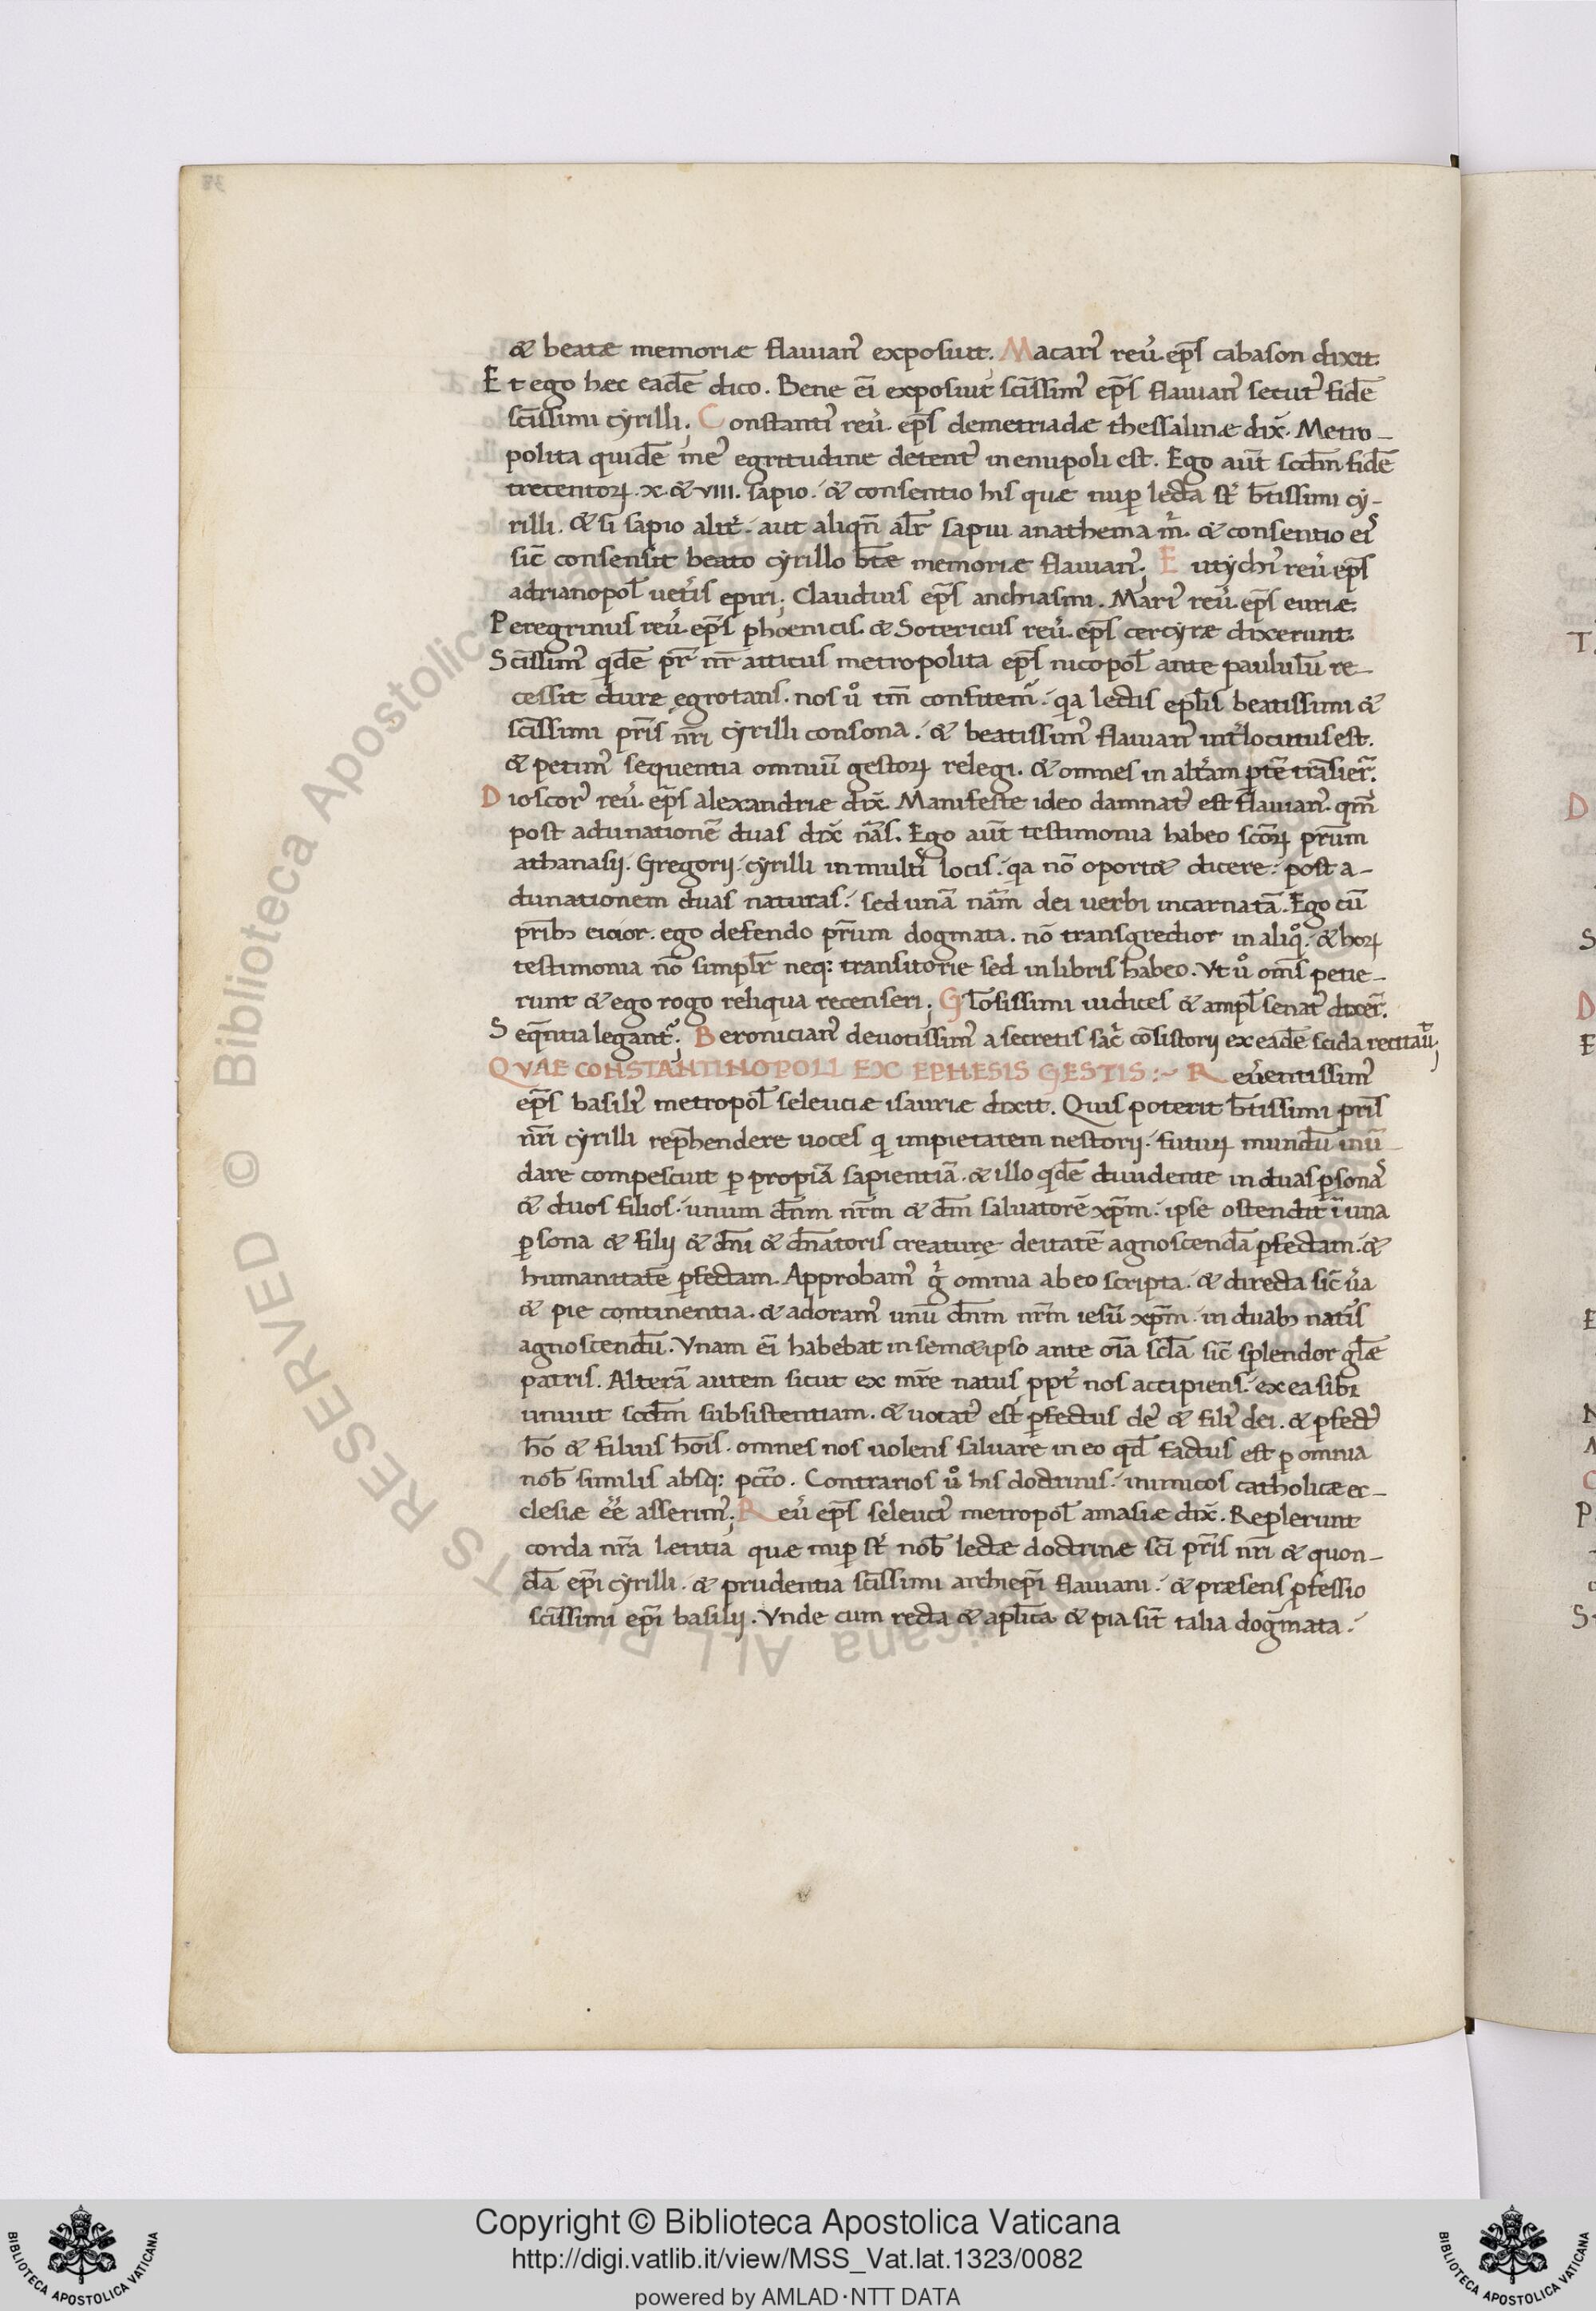 & beatæ memoriæ flauian᾽ exposuit. Macari᾽ reu̓. ep̄s cabason dixit.
Et ego hæc eadē dico. Bene ei̅ exposuit sc̄issim᾽ ep̄s flauian᾽ secut᾽ fidē
sc̄issimi cyrilli; Constanti᾽ reu̓. ep̄s demetriadæ thessaliæ dix̄. Metro-
polita quidē me᾽ egritudine detent᾽ in enipoli est. Ego aūt scd̄m fidē
trecentoꝝ .x. & VIII. sapio. & consentio his quæ nuꝑ lecta st̄ b̄tissimi cy-
rilli. & si sapio alit̓. aut aliqn̄ alr̄ sapui anathema m̓. & consentio ei᾽
sic̄ consensit beato cyrillo b̄tæ memoriæ flauian᾽; Eutychi᾽ reu̓ ep̄s
adrianopol̄ uet̓is epiri; Claudius ep̄s anchiasmi. Mari᾽ reu̓. ep̄s euriæ.
Peregrinus reu̓. ep̄s phoenicis. & Sotericus reu̓. ep̄s cercyræ dixerunt.
Sc̄issim᾽ qdē pr̄ nr̄ atticus metropolita ep̄s nicopol̄ ante paululū re-
cessit dure ęgrotans. nos ů tm̄ confitem᾽. qa lectis epl̄is beatissimi &
sc̄issimi pr̄is nr̄i cyrilli consona. & beatissim᾽ flauian᾽ int̓locutus est.
& petim᾽ sequentia omniū gestoꝝ relegi. & omnes in alt̓am ꝑtē trāsier̄.
Dioscor᾽ reu̓. ep̄s alexandriæ dix̄. Manifeste ideo damnat᾽ est flauian᾽. qm̄
post adunationē duas dix̄ nās. Ego aūt testimonia habeo sc̄oꝝ pr̄um
athanasij. Gregorij. cyrilli in multi᾽ locis. qa nō oport& dicere. post a-
dunationem duas naturas. sed unā nām dei uerbi incarnatā. Ego cū
pr̄ibꝫ eicior. ego defendo pr̄um dogmata. nō transgredior in aliq̊. & hoꝝ
testimonia nō simplr̄ neq: transitorie sed in libris habeo. Vt ů om̄s petie-
runt & ego rogo reliqua recenseri; Gl̄osissimi iudices & ampl̄ senat᾽ dixer̄.
Seqn̄tia legant᾽; Beronician᾽ deuotissim᾽ a secretis sac̓ cōsistorij ex eadē scida recitau̅;
QVAE CONSTANTINOPOLI EX EPHESIS GESTIS:~ Reu̓entissim᾽
ep̄s basili᾽ metropol̄ seleuciæ isauriæ dixit. Quis poterit b̄tissimi pr̄is
nr̄i cyrilli rep̄hendere uoces q impietatem nestorij. futuꝝ mundū inū-
dare compescuit ꝑ propiā sapientiā. & illo qdē diuidente in duas ꝑsona᾽
& duos filios. unum dn̄m nr̄m & dm̄ saluatorē xp̄m. ipse ostendit ī una
ꝑsona & filij & dn̄i & dn̄atoris creaturę deitatē agnoscendā ꝑfectam. &
humanitatē ꝑfectam. Approbam᾽ g̓ omnia ab eo scripta. & directa sic̄ u̓a
& pie continentia. & adoram᾽ unū dn̄m nr̄m iesū xp̄m. in duabꝫ natis
agnoscendū. Vnam ei̅ habebat in sem&ipso ante oīa sc̄la sic̄ splendor gl̄æ
patris. Alterā autem sicut ex mr̄e natus ppt̓ nos accipiens. ex ea sibi
uniuit scd̄m subsistentiam. & uocat᾽ est ꝑfectus de᾽ & fili᾽ dei. & ꝑfect᾽
hō & filius hōis. omnes nos uolens saluare in eo qd̄ factus est ꝑ omnia
nob̄ similis absq: pcc̄o. Contrarios ů his doctrinis. inimicos catholicæ ec-
clesiæ ee̅ asserim᾽; Reu̓ ep̄s seleuci᾽ metropol̄ amasiæ dix̄. Replerunt
corda nr̄a lętitia quæ nuꝑ st̄ nob̄ lectæ doctrinæ sc̄i pr̄is nr̄i & quon-
dā ep̄i cyrilli. & prudentia sc̄issimi archiep̄i flauiani. & præsens ꝓfessio
sc̄issimi ep̄i basilij. Vnde cum recta & apl̄ica & pia sīt talia dogmata.
Copyright © Biblioteca Apostolica Vaticana
http://digi.vatlib.it/view/MSS_Vat.lat.1323/0082
powered by AMLAD·NTT DATA